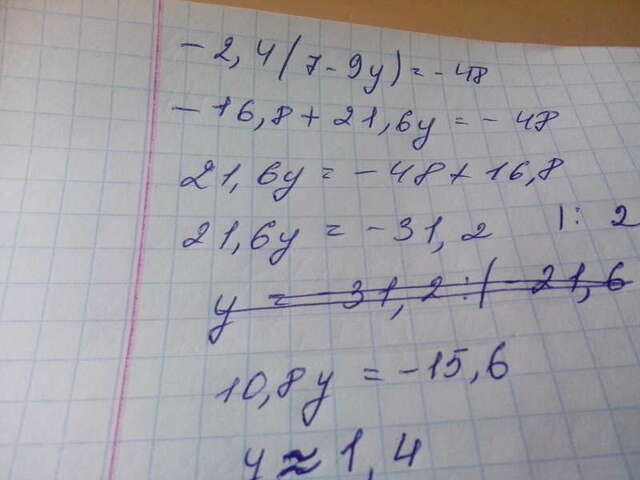 -2,4(7-9y)=-48
-16,8+21,6y=-48
21,6y=-48+16,8
21,6y=-31,2 |:2
y=-31,2:(-21,6
10,8y=-15,6
y≈1,4